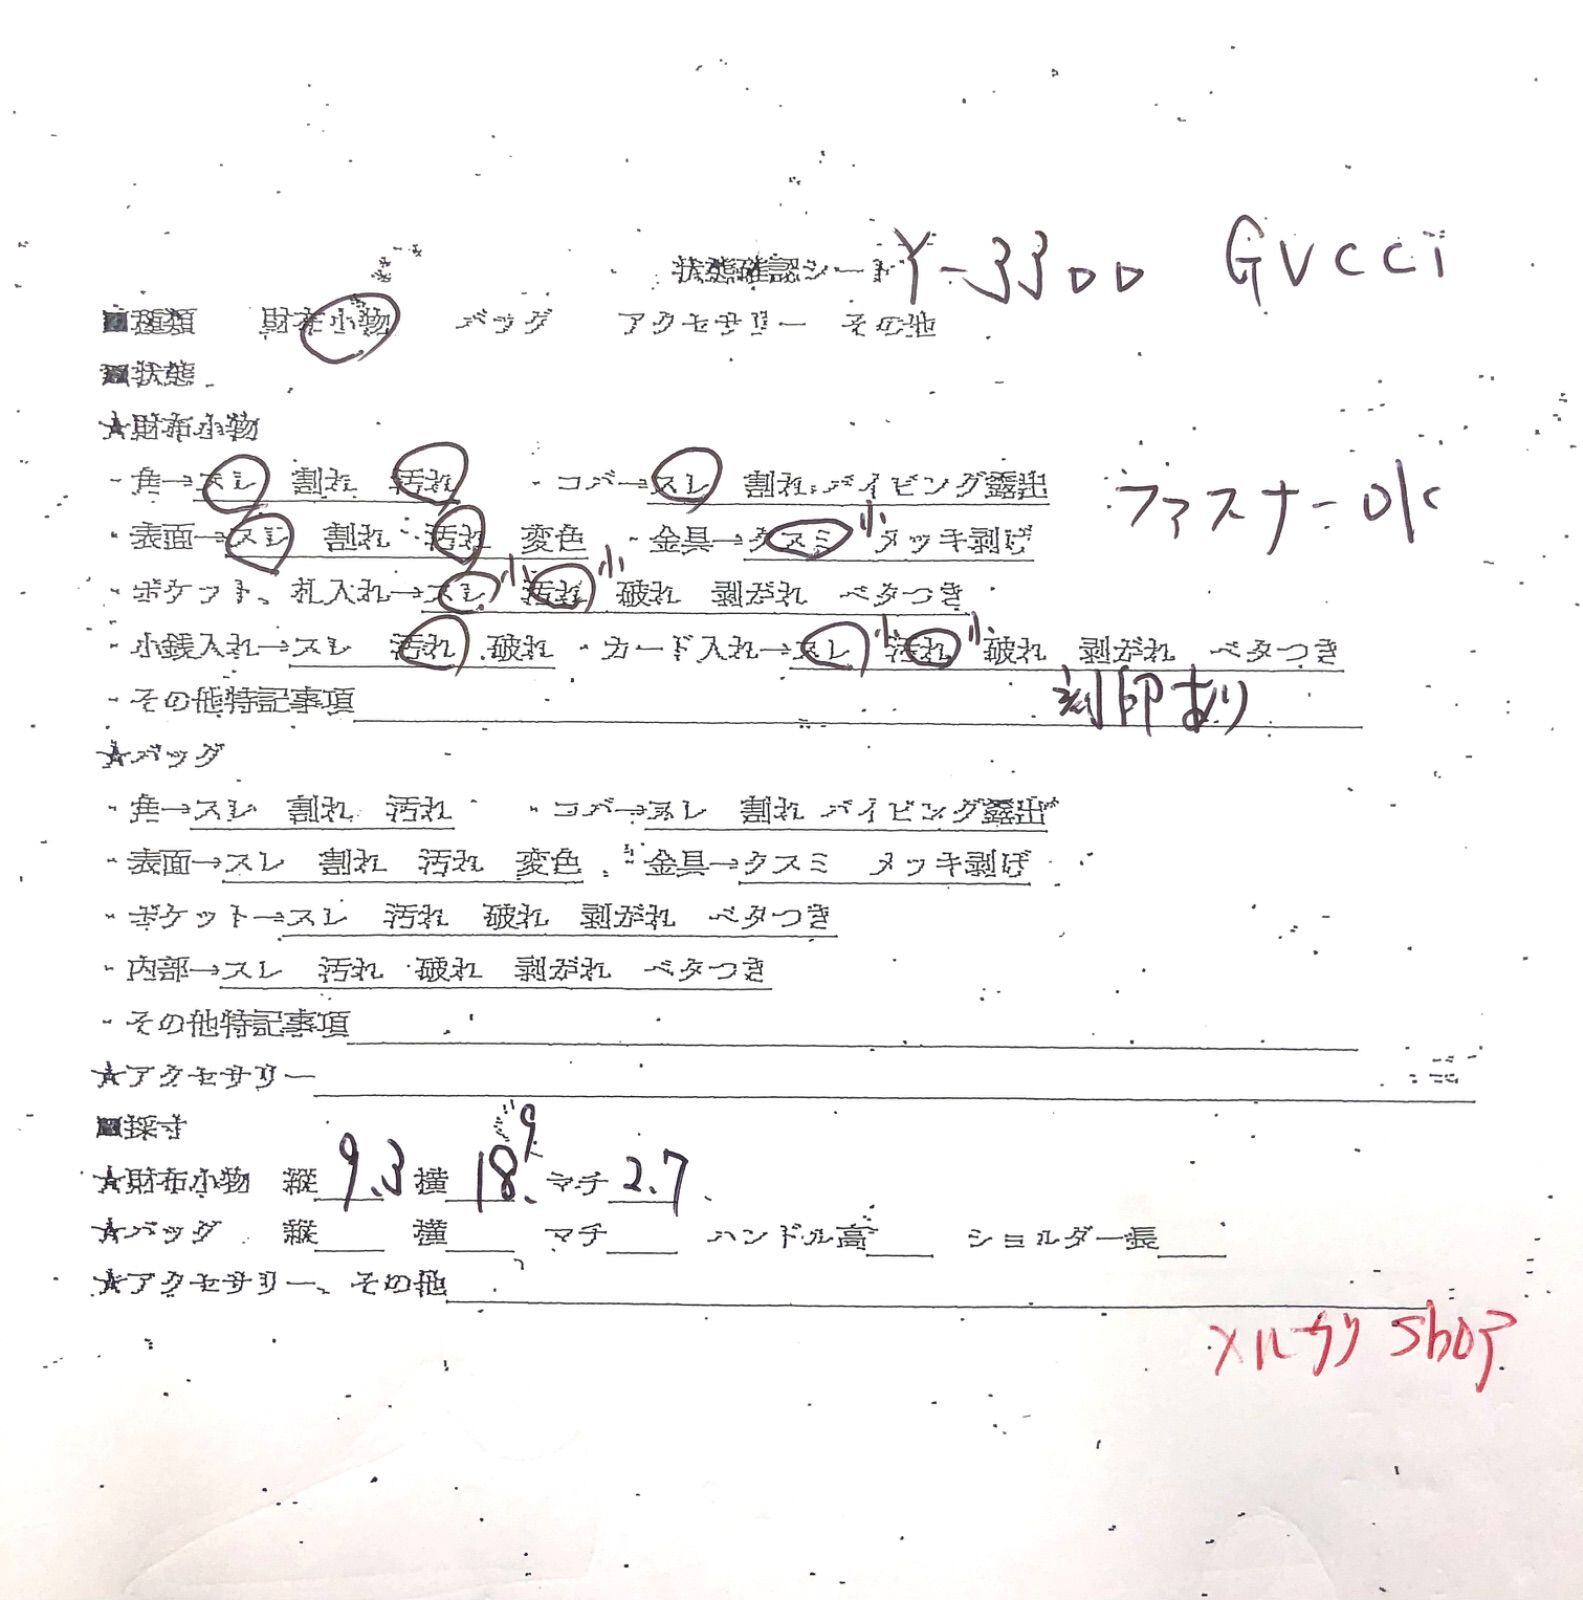 状態確認シート Y-3300 GUCCI
■種類 財布小物 バッグ アクセサリー その他
■状態
★財布小物
・角→スレ 割れ 汚れ ・コバ→スレ 割れ パイピング露出 ファスナーOK
・表面→スレ 割れ 汚れ 変色 ・金具→クスミ小 メッキ剥げ
・ポケット、札入れ→スレ小 汚れ小 破れ 剥がれ ベタつき
・小銭入れ→スレ 汚れ 破れ ・カード入れ→スレ小 汚れ小 破れ 剥がれ ベタつき
・その他特記事項 刻印あり
★バッグ
・角→スレ 割れ 汚れ ・コバ→スレ 割れ パイピング露出
・表面→スレ 割れ 汚れ 変色 ・金具→クスミ メッキ剥げ
・ポケット→スレ 汚れ 破れ 剥がれ ベタつき
・内部→スレ 汚れ 破れ 剥がれ ベタつき
・その他特記事項
★アクセサリー
■採寸
★財布小物 縦 9.3 横 18.9 マチ 2.7
★バッグ 縦 横 マチ ハンドル高 ショルダー長
★アクセサリー、その他
メルカリ shop